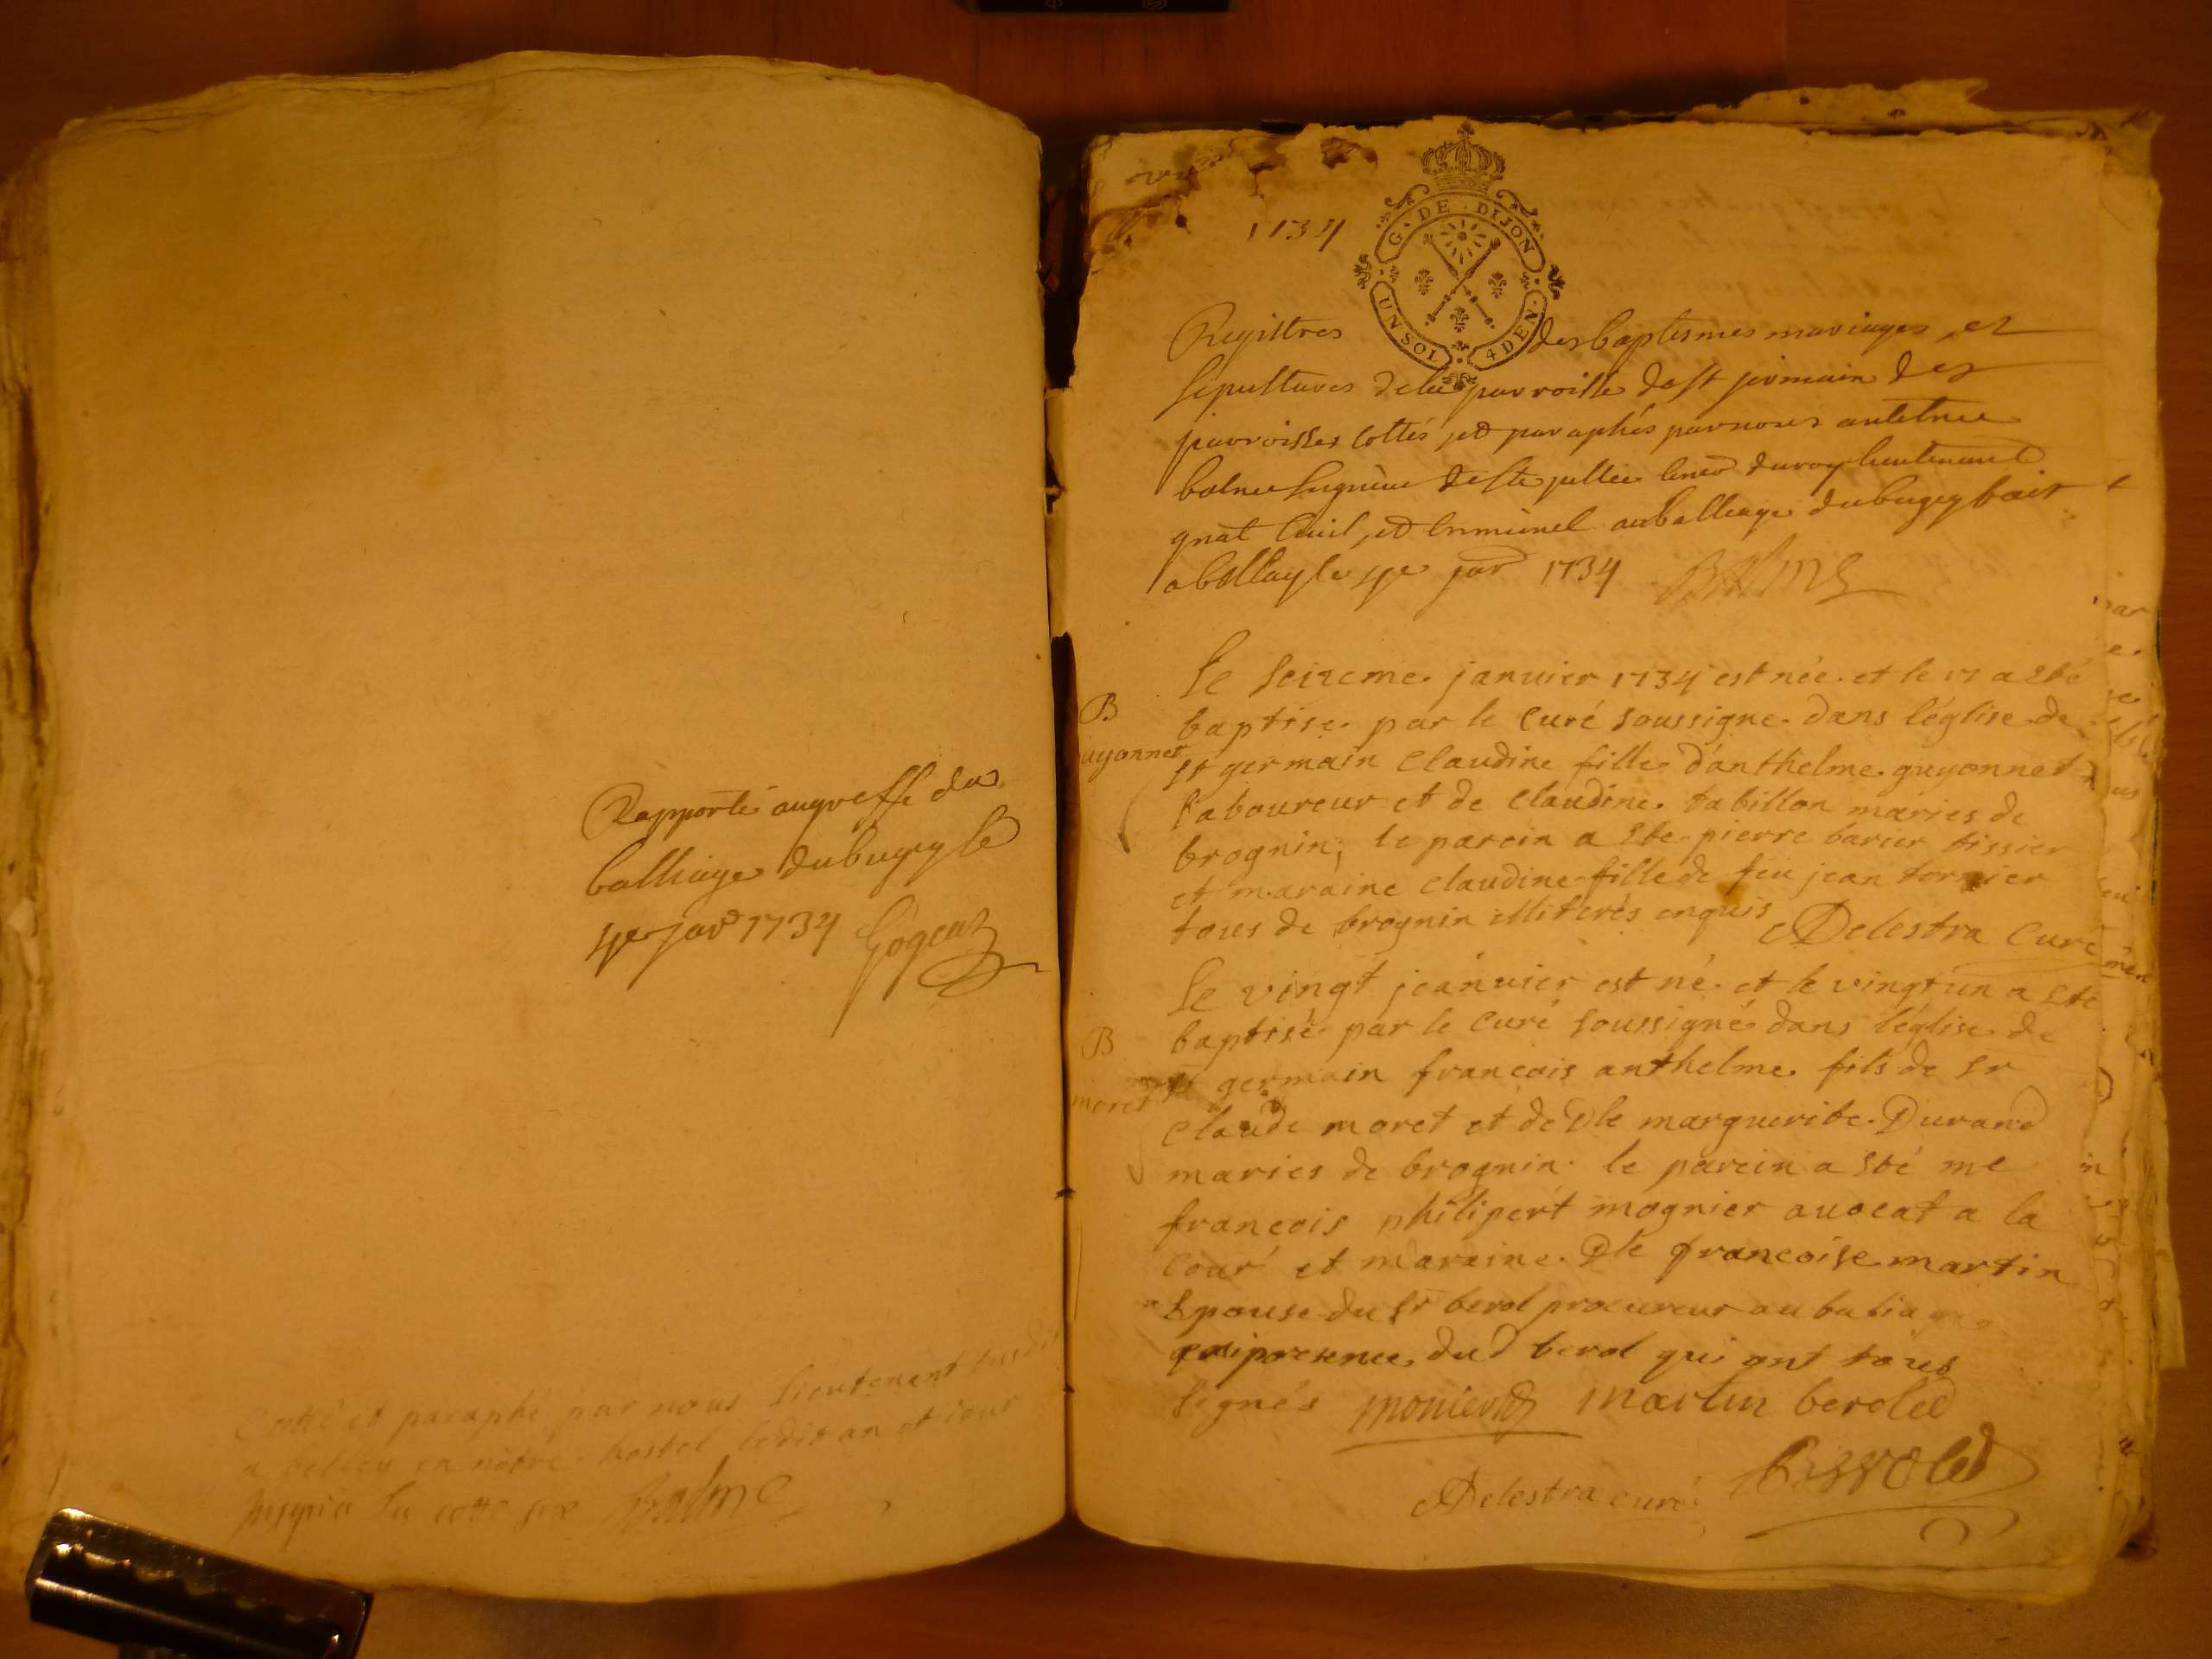 Rapporté augreffe du
balliage dubugey le
Janr 1734
Cotté et paraphé par nous lieutenant susdit
a belley en nôtre hostel ledit an et jour
Balme
1734
G. DE DIJON
UN SOL 4 DEN.
Registres des baptesmes mariages et
sepultures dela parroisse de st jermain des
parroisses cottés et paraphés parnous antelme
balme seigneur de ste jullie duroy lieutenant
gnal Civil, et Criminel auballiage dubugey
abellay le janr 1734 Balme
B
uyonnet
le seizeme janvier 1734 est née et le 17 a Eté
baptise par le Curé soussigné dans l'église de
st germain Claudine fille d'anthelme guyonnet
laboureur et de Claudine tabillon maries de
brognin; le parein a Ete pierre barier tissier
et maraine Claudine fille de feu jean tornier
tous de brognin illiterés enquis Delestra Curé
B
moret
le vingt jeanvier est né et le vingtun a Eté
baptisé par le Curé soussigné dans l'église de
st germain francois anthelme fils de Sr
Claude moret et de Dle marguerite Durand
maries de brognin le parein a Eté me
francois philipert mognier avocat a la
Cour et maraine Dle francoise martin
Epouse du Sr berol procureur au balia
presence dud berol qui ont tous
signés martin beroled
Delestra curé